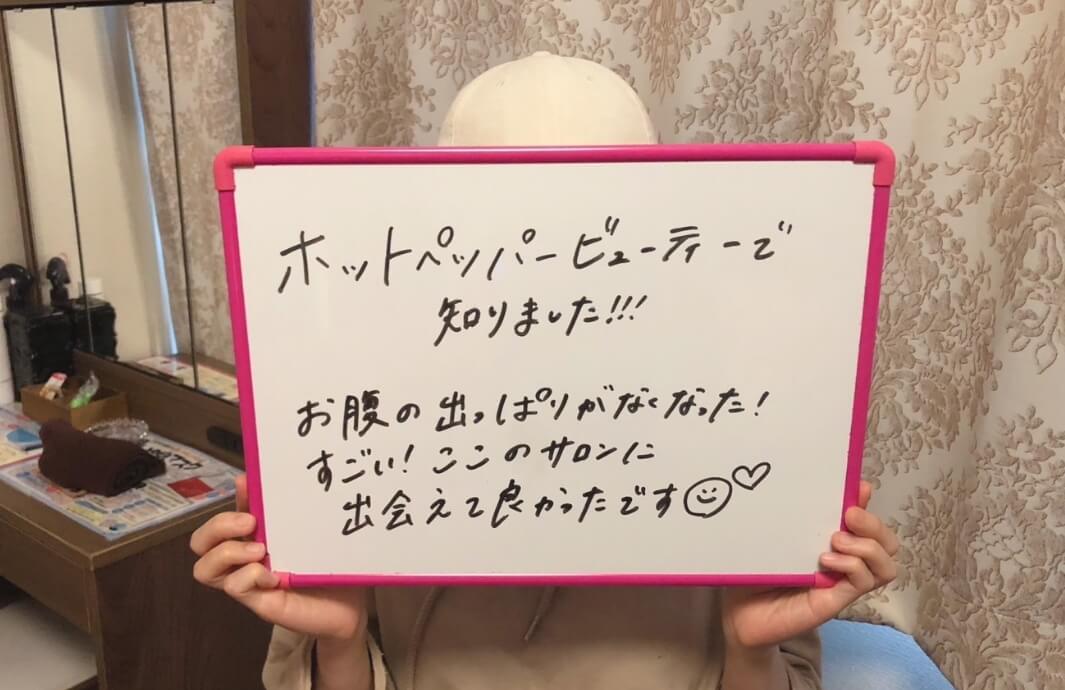 ホットペッパービューティーで
知りました!!!
お腹の出っぱりがなくなった!
すごい!ここのサロンに
出会えて良かったです☺♡